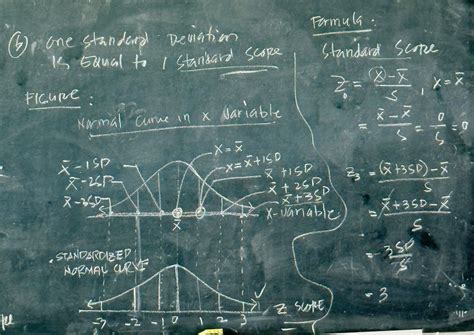 (b) One Standard Deviation
Is Equal to 1 Standard Score
FIGURE :
Normal Curve in X Variable
X = X̄
X = X̄ + 1SD
X̄ + 1SD
X̄ + 2SD
X̄ + 3SD
X-variable
X̄ - 1SD
X̄ - 2SD
X̄ - 2SD
X̄
• STANDARDIZED
NORMAL CURVE
-3 -2 -1 0 1 2 3
Z SCORE
Formula :
Standard Score
Z₀ = (X) - X̄ / S , X = X̄
= X̄ - X̄ / S = 0 / S = 0
Z₃ = (X̄ + 3SD) - X̄ / S
= X̄ + 3SD - X̄ / S
= 3SD / S
= 3